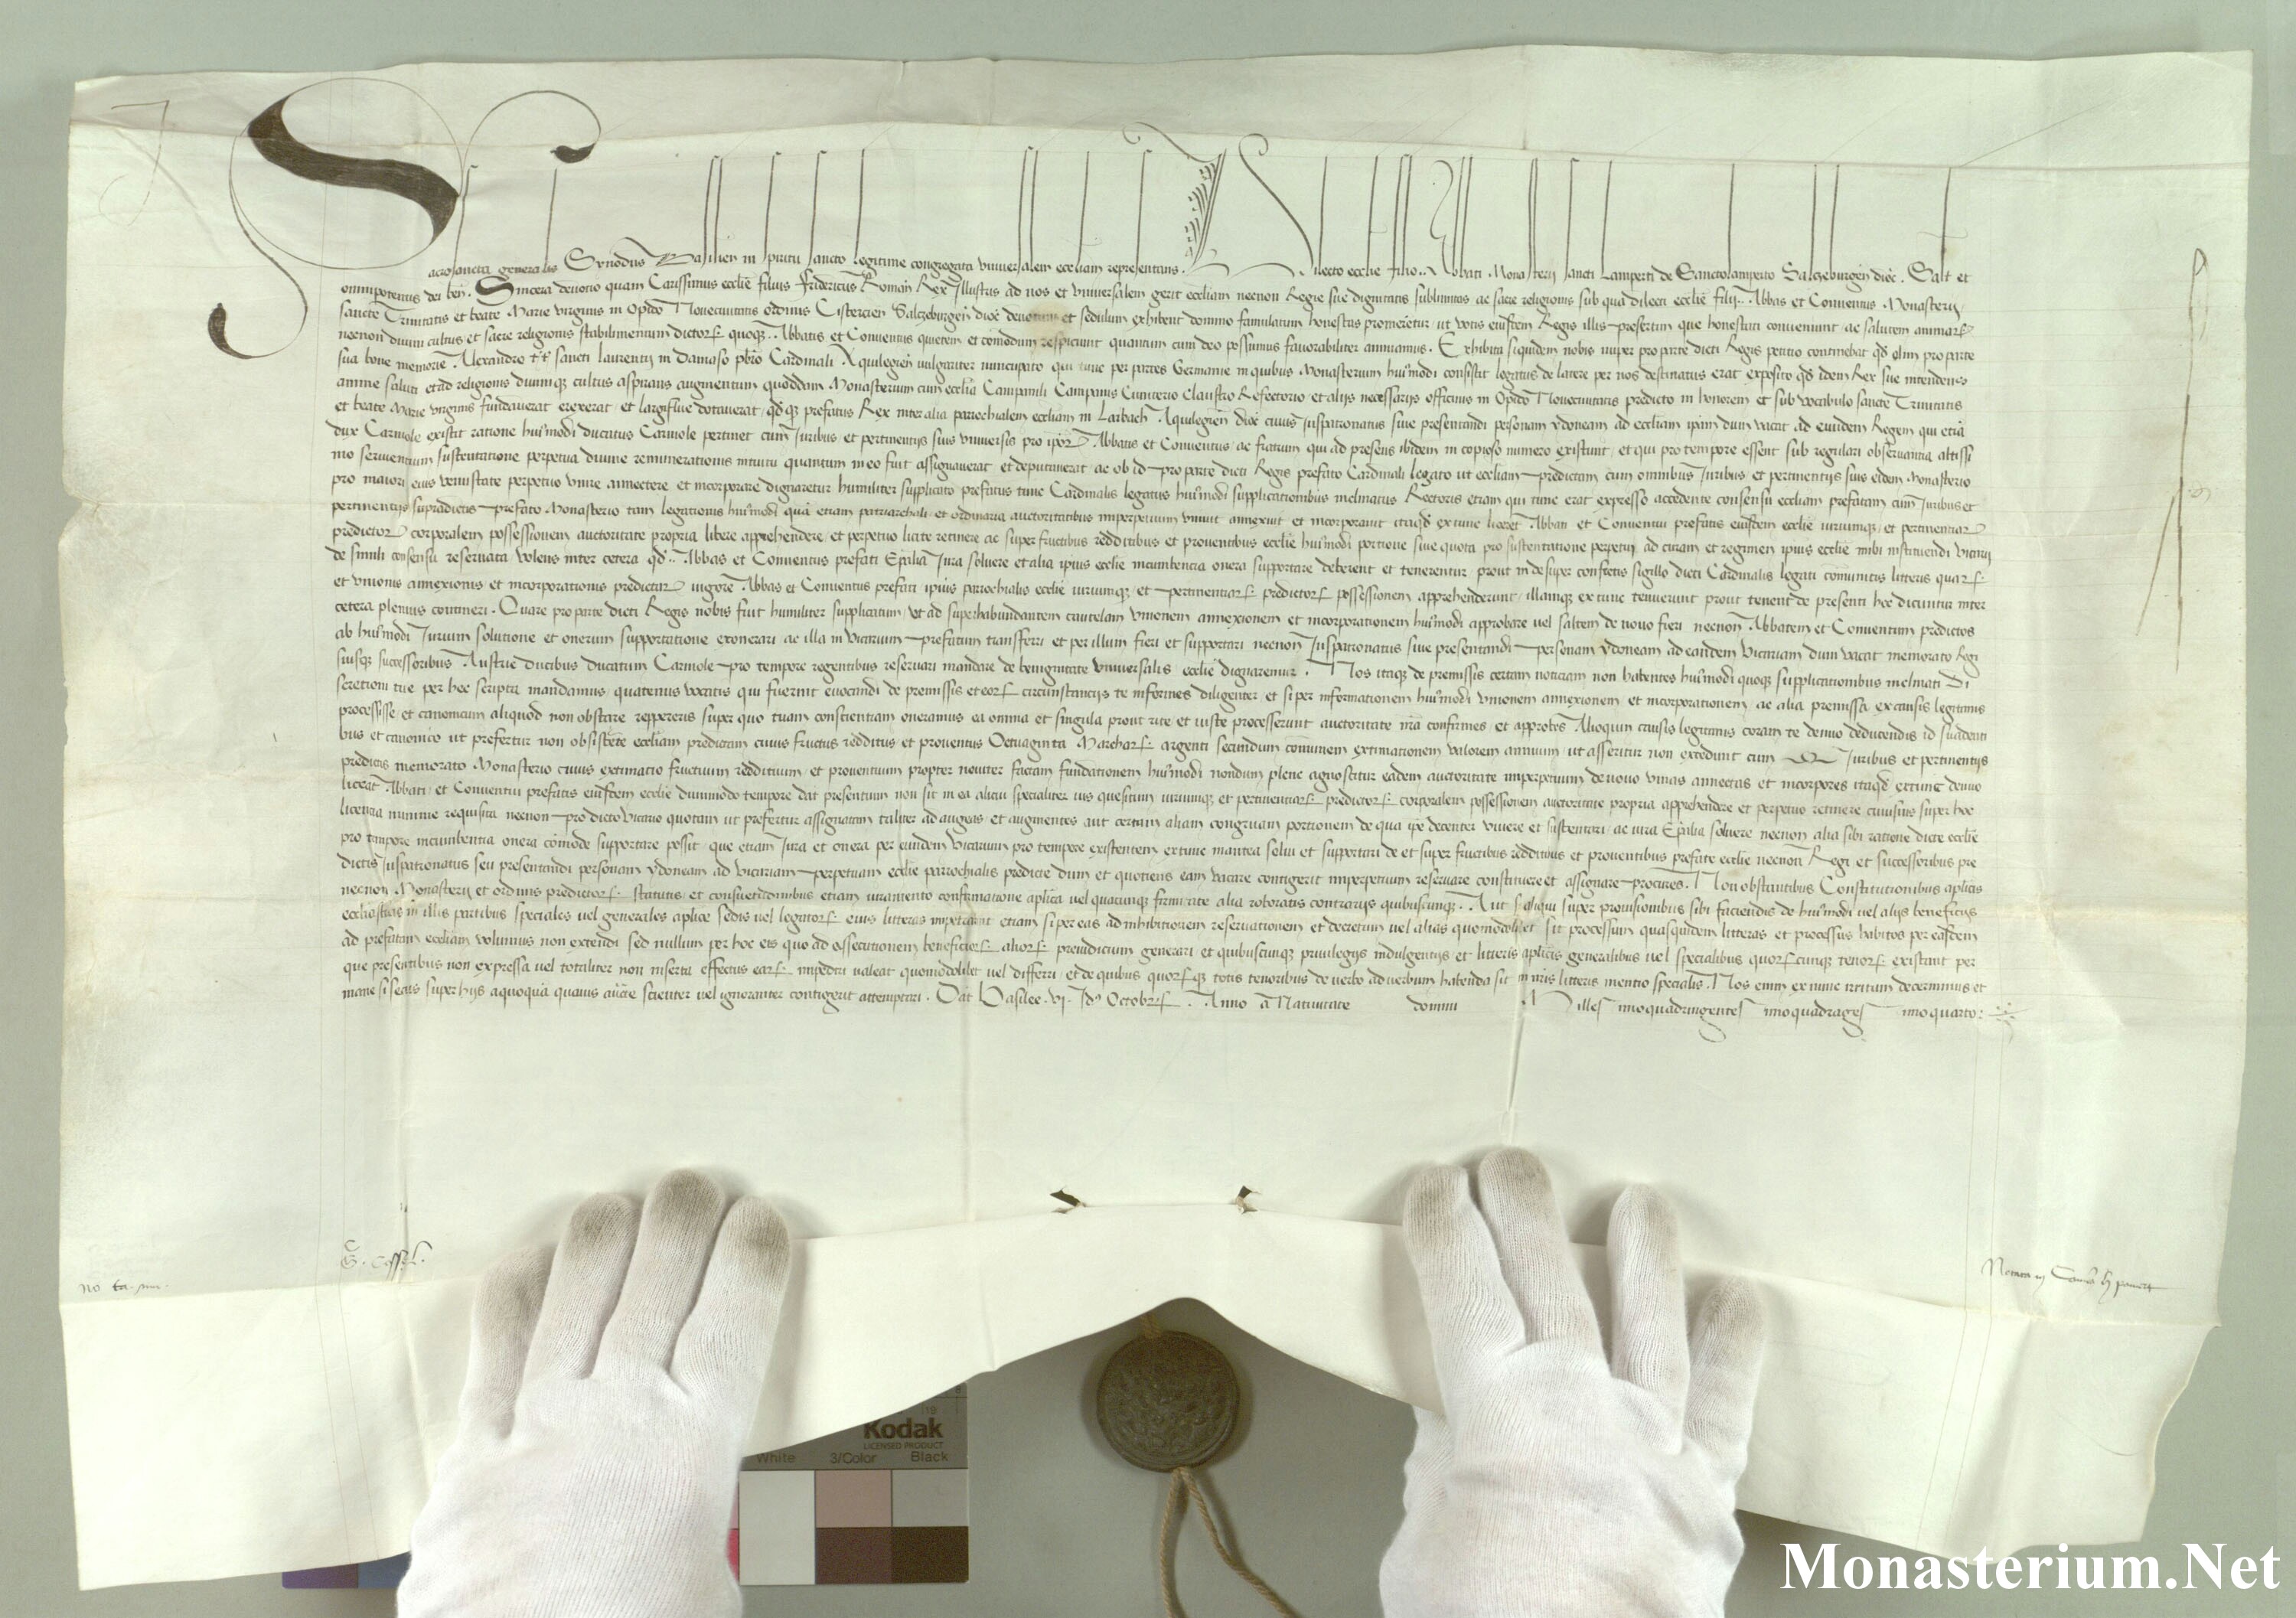 Sacrosancta generalis Synodus Basilien in spiritu sancto legitime congregata universalem eccliam representans. Dilecto ecclie filio .. Abbati Monasterij sancti Lamperti de Sanctolamperto Salczeburgen dioc. Salt et
omnipotentis dei ben. Sincera devotio quam Carissimus ecclie filius Fridericus Roman Rex Illustris ad nos et universalem gerit eccliam necnon Regie sue dignitatis sublimitas ac sacre religionis sub qua dilecti ecclie filij .. Abbas et Conventus Monasterij
sancte Trinitatis et beate Marie virginis in Opido Novecivitatis ordinis Cistercien Salczeburgen dioc devotum et sedulum exhibent domino famulatum honestas promeretur ut votis eiusdem Regis illis presertim que honestati conveniunt ac salutem animar
necnon divini cultus et sacre religionis stabilimentum dictor quoqz .. Abbatis et Conventus quietem et comodum respiciunt quantum cum deo possumus favorabiliter annuamus. Exhibita siquidem nobis nuper pro parte dicti Regis petitio continebat qd olim pro parte
sua bone memorie Alexandro tt sancti Laurentij in Damaso pbro Cardinali Aquilegien vulgariter nuncupato qui tunc per partes Germanie in quibus Monasterium huiusmodi consistit legatus de latere per nos destinatus erat exposito qd idem Rex sue intendens
anime saluti et ad religionis diviniqz cultus aspirans augmentum quoddam Monasterium cum ecclia Campanili Campanis Cimiterio Claustro Refectorio et alijs necessarijs officinis in Opido Novecivitatis predicto in honorem et sub vocabulo sancte Trinitatis
et beate Marie virginis fundaverat erexerat et largiflue dotaverat qdqz prefatus Rex inter alia parrochialem eccliam in Laibach Aquilegien dioc cuius Juspatronatus sive presentandi personam ydoneam ad eccliam ipam dum vacat ad eundem Regem qui etia
dux Carniole existit ratione huiusmodi ducatus Carniole pertinet cum Juribus et pertinentijs suis universis pro ipor Abbatis et Conventus ac fratrum qui ad presens ibidem in copioso numero existunt et qui pro tempore essent sub regulari observantia altissi
mo servientium sustentatione perpetua divine remunerationis intuitu quantum in eo fuit assignaverat et deputaverat ac ob id pro parte dicti Regis prefato Cardinali legato ut eccliam predictam cum omnibus Juribus et pertinentijs suis eidem Monasterio
pro maiori eius venustate perpetuo unire annectere et incorporare dignaretur humiliter supplicato prefatus tunc Cardinalis legatus huiusmodi supplicationibus inclinatus Rectoris etiam qui tunc erat expresso accedente consensu eccliam prefatam cum Juribus et
pertinentijs supradictis prefato Monasterio tam legationis huiusmodi qua etiam patriarchali et ordinaria auctoritatibus imperpetuum univit annexuit et incorporavit itaqd extunc liceret Abbati et Conventui prefatis eiusdem ecclie iuriumqz et pertinentiar
predictor corporalem possessionem auctoritate propria libere apprehendere et perpetuo licite retinere ac super fructibus redditibus et proventibus ecclie huiusmodi portione sive quota pro sustentatione perpetui ad curam et regimen ipius ecclie inibi instituendi vicarij
de simili consensu reservata volens inter cetera qd .. Abbas et Conventus prefati Epalia Jura solvere et alia ipius ecclie incumbencia onera supportare deberent et tenerentur prout in desuper confectis sigillo dicti Cardinalis legati comunitis litteris quar
et unionis annexionis et incorporationis predictar vigore Abbas et Conventus prefati ipius parrochialis ecclie iuriumqz et pertinentiar predictor possessionem apprehenderunt illamqz extunc tenuerunt prout tenent de presenti hec dicuntur inter
cetera plenius contineri. Quare pro parte dicti Regis nobis fuit humiliter supplicatum ut ad superhabundantem cautelam unionem annexionem et incorporationem huiusmodi approbare vel saltem de novo fieri necnon Abbatem et Conventum predictos
ab huiusmodi Jurium solutione et onerum supportatione exonerari ac illa in vicarium prefatum transferri et per illum fieri et supportari necnon Juspatronatus sive presentandi personam ydoneam ad eandem vicariam dum vacat memorato Regi
suisqz successoribus Austrie ducibus ducatum Carniole pro tempore regentibus reservari mandare de benignitate universalis ecclie dignaremur. Nos itaqz de premissis certam noticiam non habentes huiusmodi quoqz supplicationibus inclinati Di
scretioni tue per hec scripta mandamus quatenus vocatis qui fuerint evocandi de premissis et eor circunstancijs te informes diligenter et si per informationem huiusmodi unionem annexionem et incorporationem ac alia premissa ex causis legitimis
processisse et canonicum aliquod non obstare reppereris super quo tuam conscientiam oneramus ea omnia et singula prout rite et iuste processerunt auctoritate nra confirmes et approbes Alioquin causis legitimis coram te denuo deducendis id suadenti
bus et canonico ut prefertur non obsistente eccliam predictam cuius fructus redditus et proventus Octuaginta Marchar argenti secundum comunem extimationem valorem annuum ut asseritur non excedunt cum Juribus et pertinentijs
predictis memorato Monasterio cuius extimatio fructuum reddituum et proventuum propter noviter factam fundationem huiusmodi nondum plene agnoscitur eadem auctoritate imperpetuum de novo unias annectas et incorpores itaqd extunc denuo
liceat Abbati et Conventui prefatis eiusdem ecclie dummodo tempore dat presentium non sit in ea alicui specialiter ius quesitum iuriumqz et pertinentiar predictor corporalem possessionem auctoritate propria apprehendere et perpetuo retinere cuiusuis super hoc
licentia minime requisita necnon pro dicto vicario quotam ut prefertur assignatam taliter ad augeas et augmentes aut certam aliam congruam portionem de qua ipe decenter vivere et sustentari ac iura Epalia solvere necnon alia sibi ratione dicte ecclie
pro tempore incumbentia onera comode supportare possit que etiam Jura et onera per eundem vicarium pro tempore existentem extunc inantea solui et supportari de et super fructibus redditibus et proventibus prefate ecclie necnon Regi et successoribus pre
dictis Juspatronatus seu presentandi personam ydoneam ad vicariam perpetuam ecclie parrochialis predicte dum et quotiens eam vacare contigerit imperpetuum reservare constituere et assignare procures. Non obstantibus Constitutionibus aplicis
necnon Monasterij et ordinis predictor statutis et consuetudinibus etiam iuramento confirmatione aplica vel quacunqz firmitate alia roboratis contrarijs quibuscunqz. Aut si aliqui super provisionibus sibi faciendis de huiusmodi vel alijs beneficijs
ecclasticis in illis partibus speciales vel generales aplice sedis vel legator eius litteras impetrarint etiam si per eas ad inhibitionem reservationem et decretum vel alias quomodolibet sit processum quasquidem litteras et processus habitos per easdem
ad prefatam eccliam volumus non extendi sed nullum per hoc eis quo ad assecutionem beneficior alior preiudicium generari et quibuscunqz privilegijs indulgentijs et litteris aplicis generalibus vel specialibus quorcunqz tenor existant per
que presentibus non expressa vel totaliter non inserta effectus ear impediri valeat quomodolibet vel differri et de quibus quorqz totis tenoribus de verbo ad verbum habenda sit in nris litteris mentio specialis. Nos enim exnunc irritum decernimus et
inane si secus super hijs a quoqua quavis aucte scienter vel ignoranter contigerit attemptari. Dat Basilee .vj. Jd Octobr. Anno a Nativitate domini Millesimoquadringentesimoquadragesimoquarto:
no ta
Kodak
LICENSED PRODUCT
White 3/Color Black
Monasterium.Net